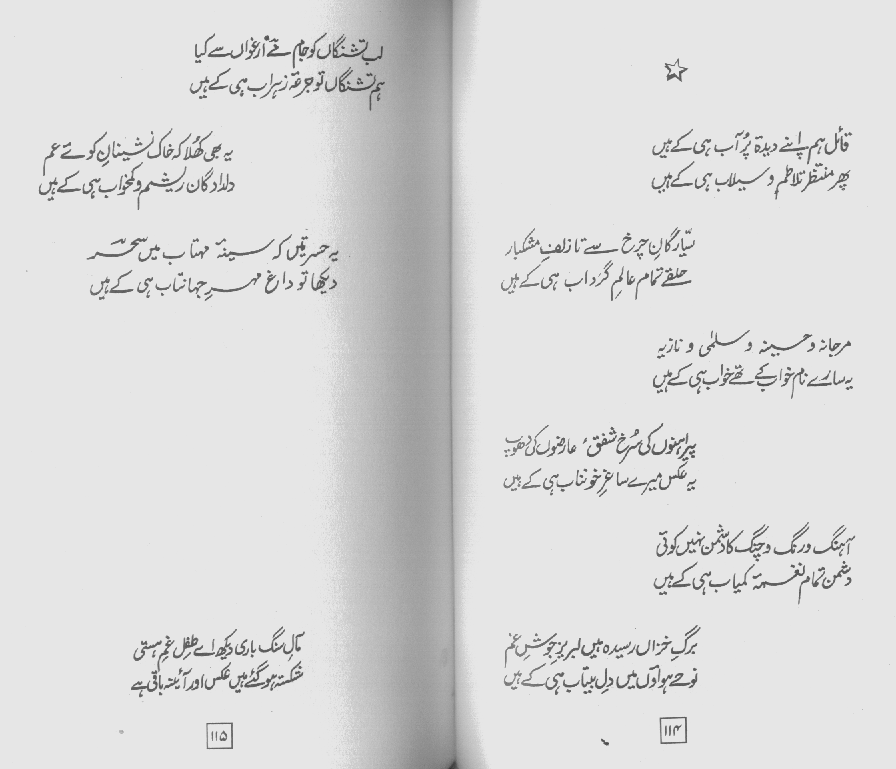 قائل ہم اپنے دیدۂ پُر آب ہی کے ہیں
پھر منتظر تلاطم و سیلاب ہی کے ہیں
سیّارگانِ چرخ سے تا زلفِ مشکبار
حلقے تمام عالمِ گرداب ہی کے ہیں
مرجانہ و حسینہ و سلمٰی و نازیہ
یہ سارے نام خواب کے تھے خواب ہی کے ہیں
پیراہنوں کی سُرخ شفق، عارضوں کی دھوپ
یہ عکس میرے ساغرِ خونناب ہی کے ہیں
آہنگ و رنگ و چنگ کا دشمن نہیں کوئی
دشمن تمام نغمۂ کمیاب ہی کے ہیں
برگِ خزاں رسیدہ ہیں لبریزِ جوشِ غم
نوحے ہواؤں میں دلِ بیتاب ہی کے ہیں
۱۱۴
لب تشنگاں کو جامِ مئے ارغواں سے کیا
ہم تشنگاں تو جرعۂ زہراب ہی کے ہیں
یہ بھی کھُلا کہ خاک نشینانِ کوئے غم
دلدادگان ریشم و کمخواب ہی کے ہیں
یہ حسرتیں کہ سینۂ مہتاب میں سحر
دیکھا تو داغ مہرِ جہانتاب ہی کے ہیں
مآلِ سنگ باری دیکھ اے طفلِ غمِ ہستی
شکستہ ہو گئے ہیں عکس اور آئینہ باقی ہے
۱۱۵